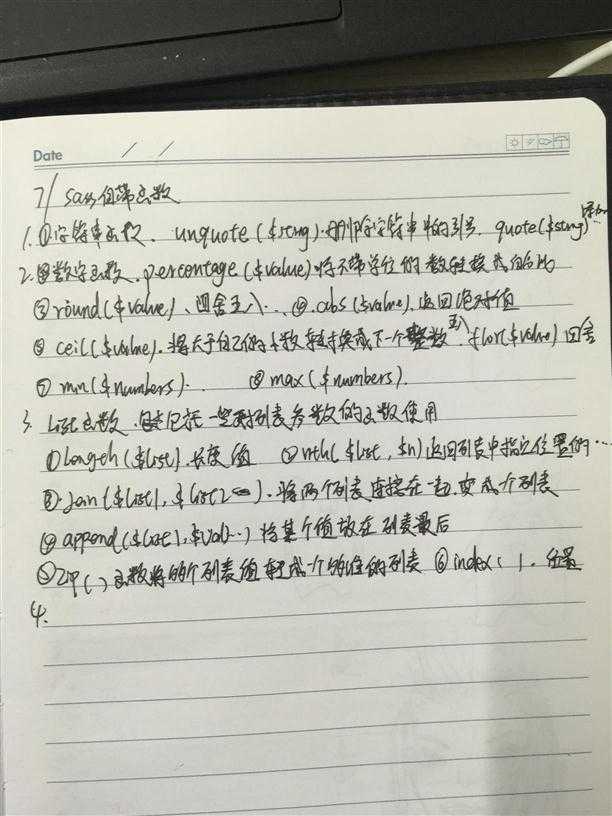 Date / /
7/ sass自带函数
1. ①字符串函数、unquote($string)·删除字符串中的引号、quote($string)添加
2. 数字函数、percentage($value)将不带单位的数转换成百分比
③round($value)、四舍五入··、④.abs($value).返回绝对值
⑤ceil($value).将大于自己的小数转换成下一个整数 五入 flor($value)四舍
⑦min($numbers).. ⑧max($numbers).
3. List函数、包括一些对列表参数的函数使用
①Length($list).长度值 ②nth($list,$n)返回列表中指定位置的…
③join($list1,$list2).将两个列表连接在一起,变成一个列表
④append($list1,$val)··)将某个值放在列表最后
⑤Zip()函数将的个列表值转成一个的维的列表 ⑥index( ).位置
4.